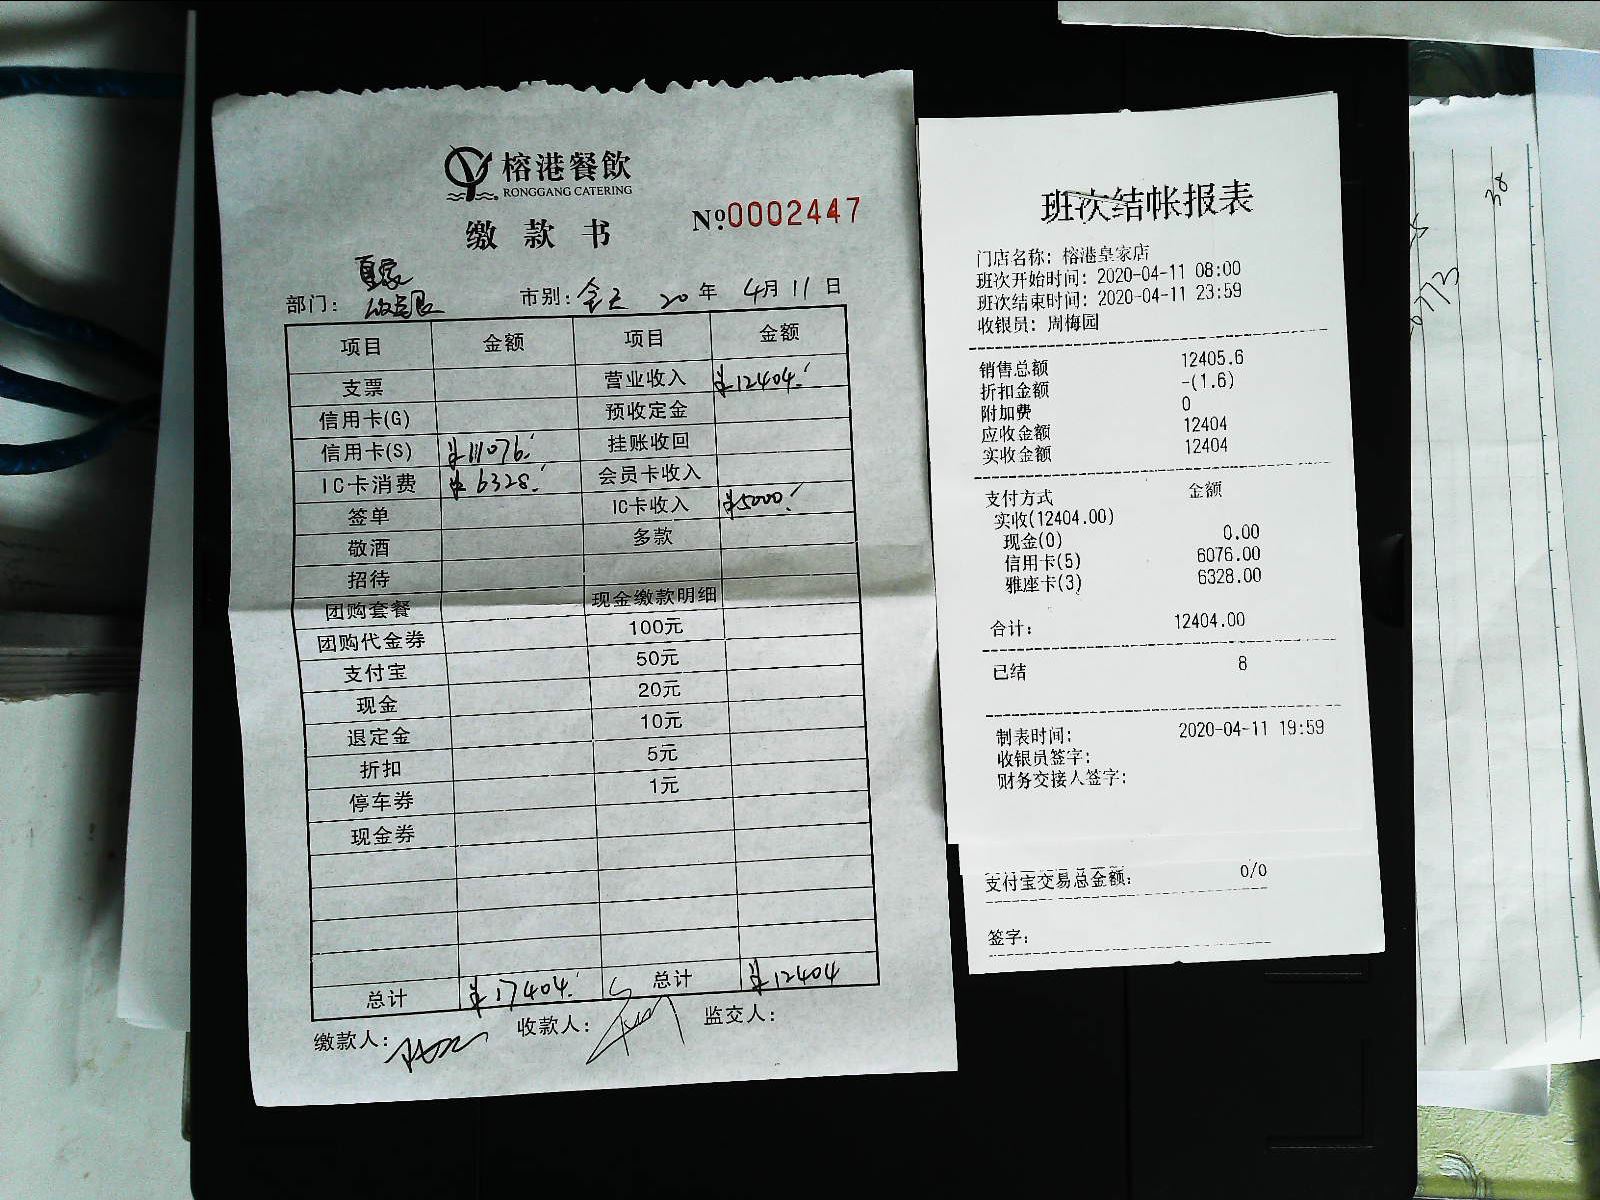 榕港餐飲
RONGGANG CATERING
缴款书
№0002447
皇家
部门: 收银 市别: 全天 20年 4月 11日
项目 金额 项目 金额
支票 营业收入 ¥12404.
信用卡(G) 预收定金
信用卡(S) ¥11076. 挂账收回
IC卡消费 ¥6328. 会员卡收入
签单 IC卡收入 ¥5000.
敬酒 多款
招待
团购套餐 现金缴款明细
团购代金券 100元
支付宝 50元
现金 20元
退定金 10元
折扣 5元
停车券 1元
现金券
总计 ¥17404. 总计 ¥12404
缴款人: 收款人: 监交人:
班次结帐报表
门店名称: 榕港皇家店
班次开始时间: 2020-04-11 08:00
班次结束时间: 2020-04-11 23:59
收银员: 周梅园
销售总额 12405.6
折扣金额 -(1.6)
附加费 0
应收金额 12404
实收金额 12404
支付方式 金额
实收(12404.00)
现金(0) 0.00
信用卡(5) 6076.00
雅座卡(3) 6328.00
合计: 12404.00
已结 8
制表时间: 2020-04-11 19:59
收银员签字:
财务交接人签字:
支付宝交易总金额: 0/0
签字:
38